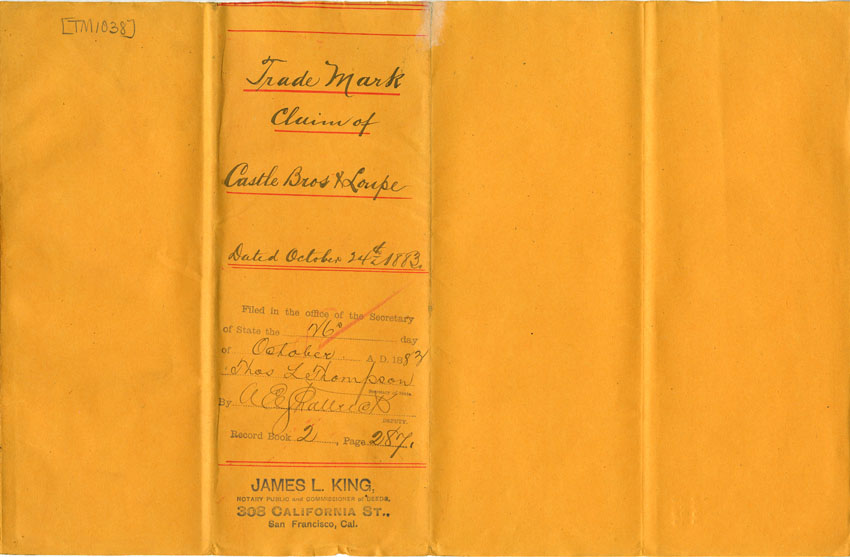 [TM1038]
Trade Mark
Claim of
Castle Bros & Loupe
Dated October 24th 1883.
Filed in the office of the Secretary
of State the 26th day
of October A. D. 1883
Thos L Thompson
Secretary of State
By A E
DEPUTY.
Record Book 2, Page 287.
JAMES L. KING,
NOTARY PUBLIC and COMMISSIONER of DEEDS,
308 CALIFORNIA ST.,
San Francisco, Cal.